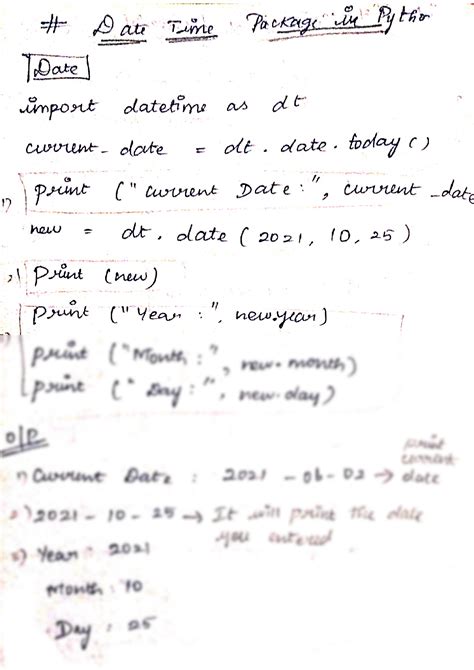 # Date Time Package in Pytho
Date
import datetime as dt
current_date = dt.date.today()
1) print ("Current Date:", current_date
new = dt.date(2021, 10, 25)
2) Print (new)
Print ("Year :", new.year)
3) print ("Month :", new.month)
print (" Day :", new.day)
O/P
1) Current Date : 2021-06-02 → print current date
2) 2021-10-25 → It will print the date you entered
3) Year : 2021
Month : 10
Day : 25